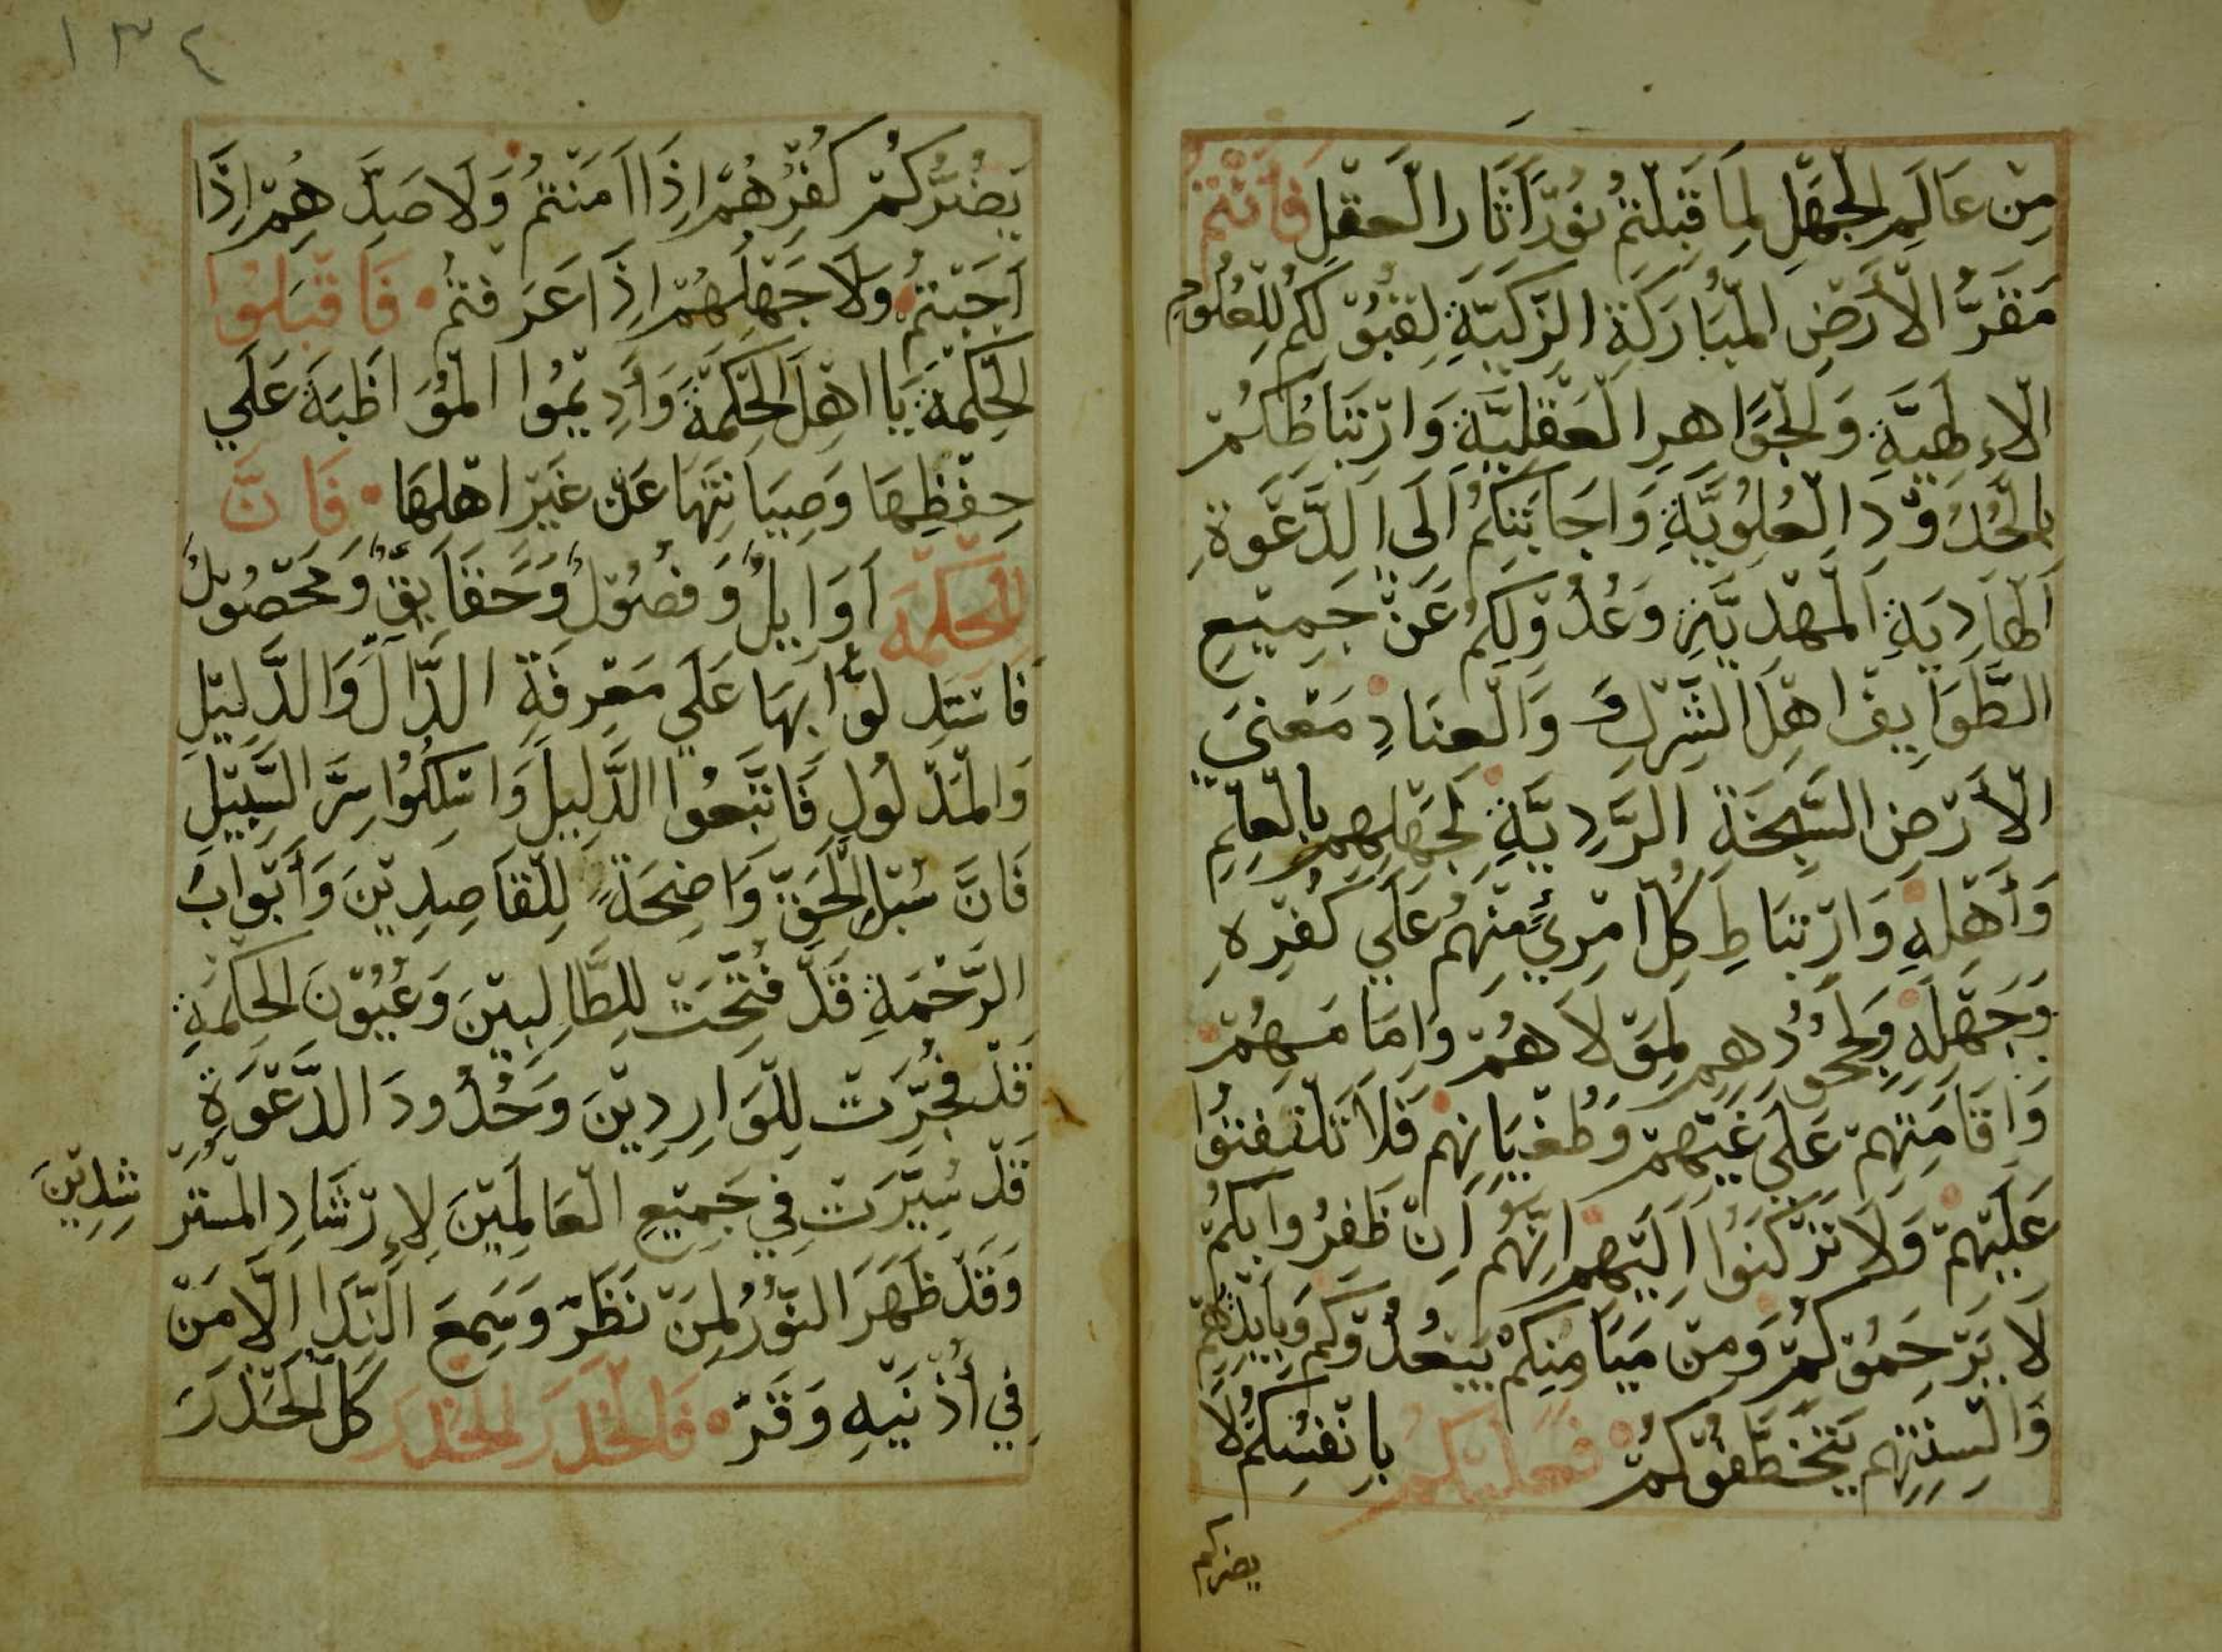 مِنْ عَالَمِ الْجَهْلِ لِمَا قَبِلْتُمْ نُوْرَ اَثَارِ الْعَقْلِ فَاَنْتُمْ
مَقَرُّ الْأَرْضِ الْمُبَارَكَةِ الزَّكِيَّةِ لِقَبُوْلِكُمْ لِلْعُلُوْمِ
الْاءِلٰهِيَّةِ وَالْجَوَاهِرِ الْعَقْلِيَّةِ وَارْتِبَاطُكُمْ
بِالْحُدُوْدِ الْعُلْوِيَّةِ وَاِجَابَتِكُمْ اِلَى الدَّعْوَةِ
الْهَادِيَةِ الْمَهْدِيَّةِ وَعُدُوْلِكُمْ عَنْ جَمِيْعِ
الطَّوَايِفِ اهْلِ الشِّرْكِ وَالْعِنَادِ مَعْنَى
الْأَرْضِ السَّبِخَةِ الرَّدِيَّةِ لِجَهْلِهِمْ بِالْعِلْمِ
وَأَهْلِهِ وَارْتِبَاطِ كُلِّ امْرِئٍ مِنْهُمْ عَلَي كُفْرِهِ
وَجَهْلِهِ وَلِجُحُوْدِهِمْ لِمَوْلَاهُمْ وَاِمَامِهِمْ
وَاِقَامَتِهِمْ عَلَى غَيِّهِمْ وَطُغْيَانِهِمْ فَلَا تَلْتَفِتُوْا
عَلَيْهِمْ وَلَا تَرْكَنُوْا اِلَيْهِمْ اِنَّهُمْ اِنْ ظَفِرُوا بِكُمْ
لَا يَرْحَمُوْكُمْ وَمِنْ مَيَامِنِكُمْ يَبْعُدُوْكُمْ وَبِاَيْدِيْهِمْ
وَالْسِنَتِهِمْ يَتَخَطَّفُوْكُمْ فَعَلَيْكُمْ بِاَنْفُسِكُمْ لَا
يضركم
١٣٤
يَضُرُّكُمْ كُفْرُهُمْ اِذَا اَمَنْتُمْ وَلَا صَدُّهُمْ اِذَا
اَجَبْتُمْ وَلَا جَهْلُهُمْ اِذَا عَرَفْتُمْ فَاقْبَلُوْا
الْحِكْمَةَ يَا اهْلَ الْحِكْمَةِ وَأَدِيْمُوا الْمُوَاظَبَةَ عَلَي
حِفْظِهَا وَصِيَانَتِهَا عَنْ غَيْرِ اهْلِهَا فَاِنَّ
لِلْحِكْمَةِ اَوَايِلُ وَفُصُوْلٌ وَحَقَايِقٌ وَمَحْصُوْلٌ
فَاسْتَدِلُّوْا بِهَا عَلَي مَعْرِفَةِ الدَّالِّ وَالدَّلِيْلِ
وَالْمَدْلُولِ فَاتَّبِعُوا الدَّلِيلَ وَاسْلُكُوْا سِرَّ السَّبِيْلِ
فَاِنَّ سُبْلَ الْحَقِّ وَاضِحَةٌ لِلْقَاصِدِيْنَ وَأَبْوَابَ
الرَّحْمَةِ قَدْ فُتِّحَتْ لِلطَّالِبِيْنَ وَعُيُوْنَ الْحِكْمَةِ
قَدْ فُجِّرَتْ لِلْوَارِدِيْنَ وَحُدُودَ الدَّعْوَةِ
قَدْ سُيِّرَتْ فِي جَمِيْعِ الْعَالَمِيْنَ لِاِرْشَادِ الْمُسْتَرْ
شِدِيْنَ
وَقَدْ ظَهَرَ النُّوْرُ لِمَنْ نَظَرَ وَسَمِعَ النِّدَا اِلَّا مَنْ
فِي أُذْنَيْهِ وَقَرْ فَالْحَذَرَ الْحَذَرَ كُلَّ الْحَذَرَ